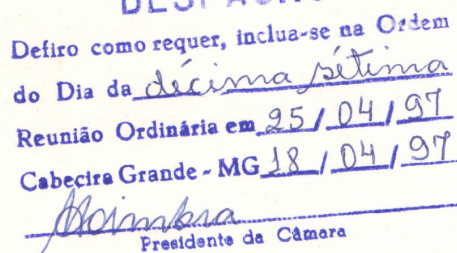 DESPACHO
Defiro como requer, inclua-se na Ordem
do Dia da décima sétima
Reunião Ordinária em 25/04/97
Cabeceira Grande - MG 18/04/97
Presidente da Câmara